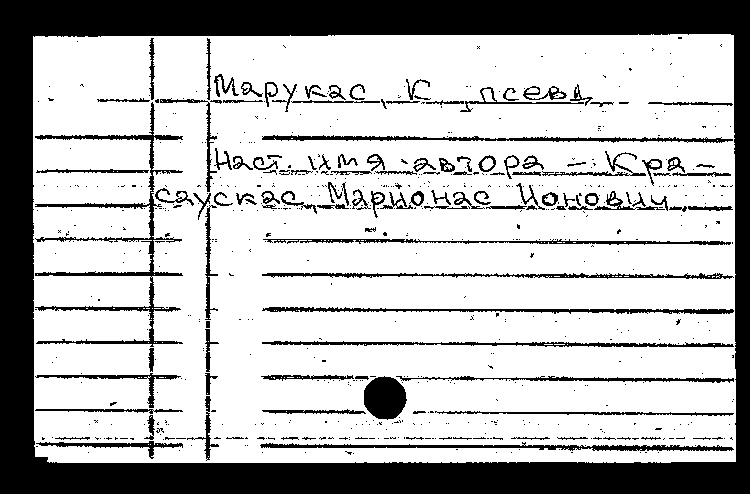 Марукас, К., псевд.
Наст. имя автора – Кра-
саускас, Марионас Ионович.